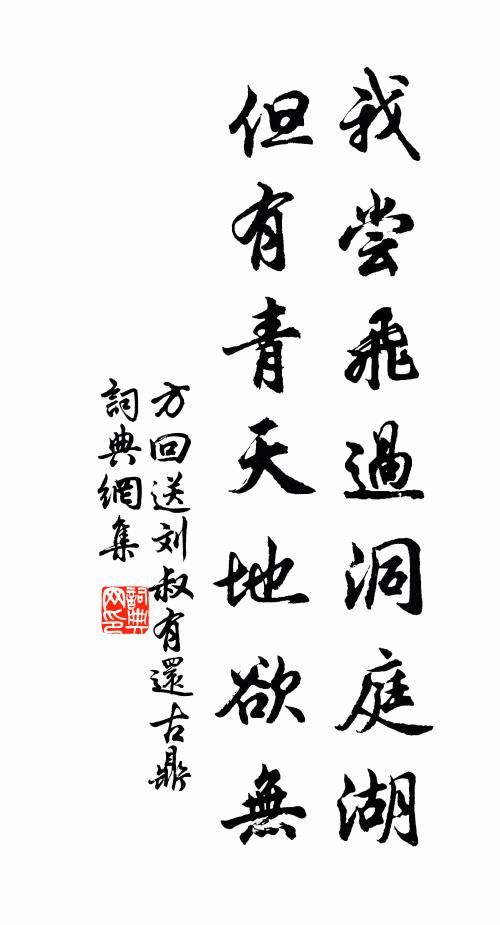 我尝飛過洞庭湖
但有青天地欲無
方回送刘叔有還古鼎
詞典網集
詞典网印